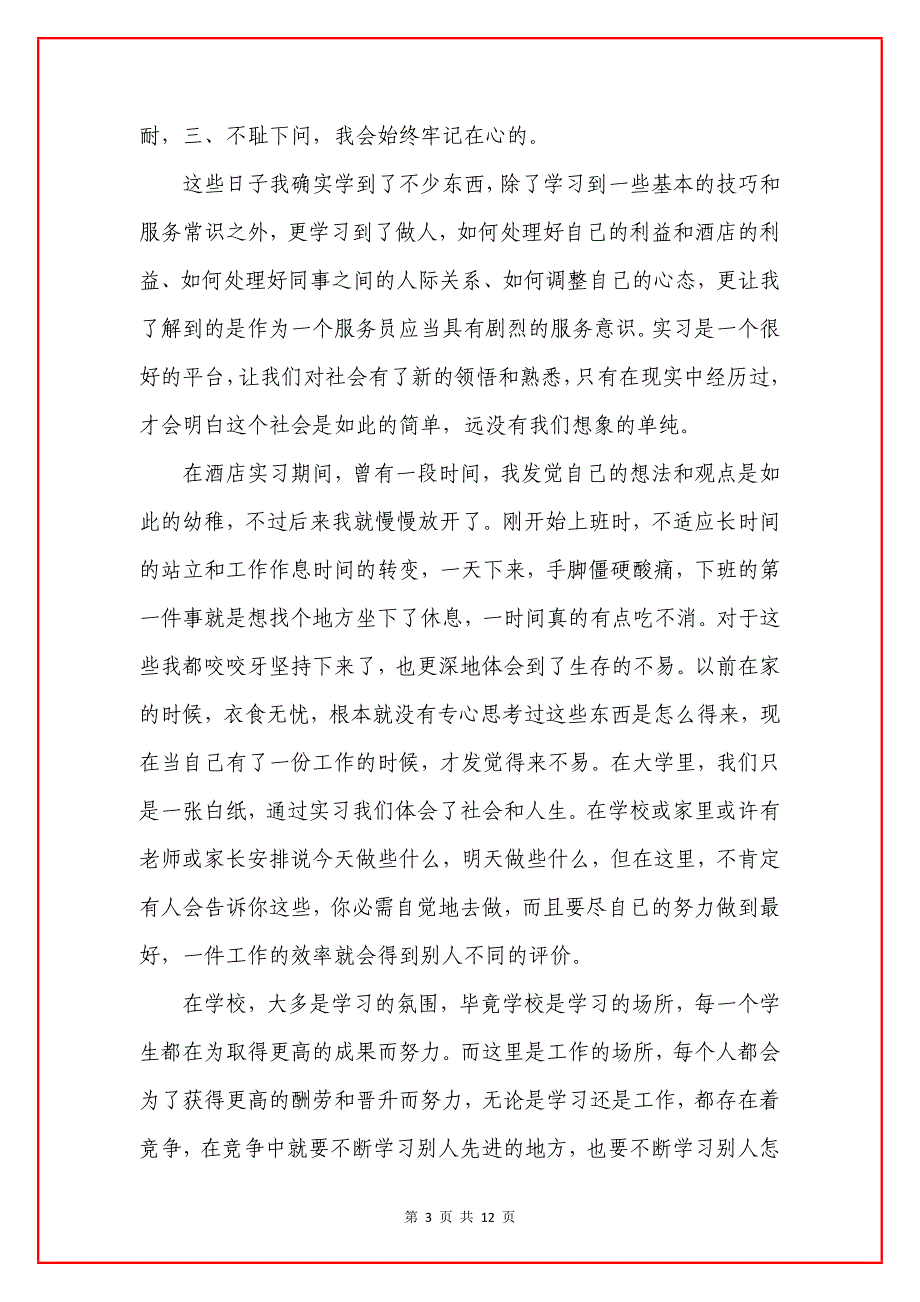 耐，三、不耻下问，我会始终牢记在心的。
这些日子我确实学到了不少东西，除了学习到一些基本的技巧和
服务常识之外，更学习到了做人，如何处理好自己的利益和酒店的利
益、如何处理好同事之间的人际关系、如何调整自己的心态，更让我
了解到的是作为一个服务员应当具有剧烈的服务意识。实习是一个很
好的平台，让我们对社会有了新的领悟和熟悉，只有在现实中经历过，
才会明白这个社会是如此的简单，远没有我们想象的单纯。
在酒店实习期间，曾有一段时间，我发觉自己的想法和观点是如
此的幼稚，不过后来我就慢慢放开了。刚开始上班时，不适应长时间
的站立和工作作息时间的转变，一天下来，手脚僵硬酸痛，下班的第
一件事就是想找个地方坐下了休息，一时间真的有点吃不消。对于这
些我都咬咬牙坚持下来了，也更深地体会到了生存的不易。以前在家
的时候，衣食无忧，根本就没有专心思考过这些东西是怎么得来，现
在当自己有了一份工作的时候，才发觉得来不易。在大学里，我们只
是一张白纸，通过实习我们体会了社会和人生。在学校或家里或许有
老师或家长安排说今天做些什么，明天做些什么，但在这里，不肯定
有人会告诉你这些，你必需自觉地去做，而且要尽自己的努力做到最
好，一件工作的效率就会得到别人不同的评价。
在学校，大多是学习的氛围，毕竟学校是学习的场所，每一个学
生都在为取得更高的成果而努力。而这里是工作的场所，每个人都会
为了获得更高的酬劳和晋升而努力，无论是学习还是工作，都存在着
竞争，在竞争中就要不断学习别人先进的地方，也要不断学习别人怎
第 3 页 共 12 页